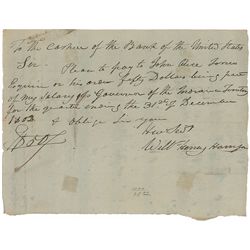 To the cashier of the Bank of the United States
Sir
Please to pay to John Rice Jones
Esquire or his order fifty Dollars being part
of my Salary as Governor of the Indiana Territory
for the quarter ending the 31st of December
1803 & oblige Sir your
Hue Servt
Will Henry Harrison